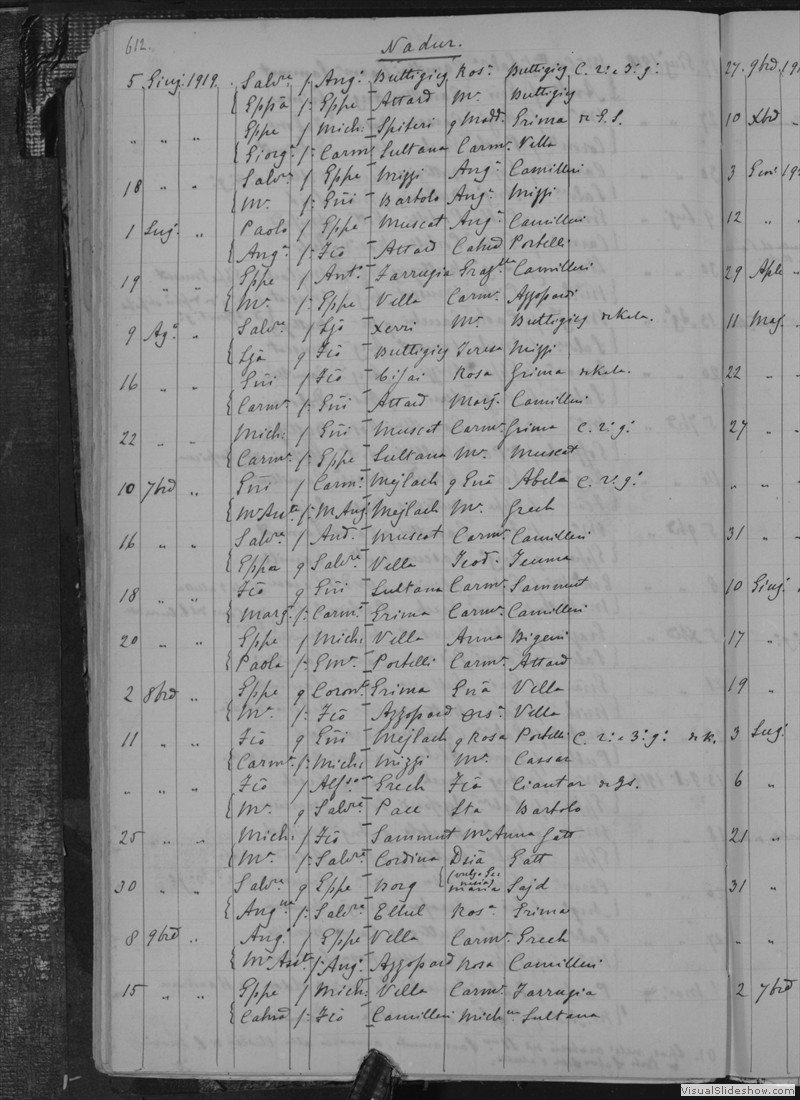 612.
Nadur.
5 Giug. 1919. Salv.re f Ang.o Buttigieg Ros.a Buttigieg C. 2.o e 3.o g.o 27. 9brē. 19
{ Eppā f. Eppe Attard M.a Buttigieg
" " " Eppe f Mich. Spiteri q Madd. Grima 10 Xbrē "
{ Giorg.a f. Carm. Sultana Carm.a Vella
18 " " Salv.re f Eppe Mizzi Ang.a Camilleri 3 Gen. 19
{ M.a f. Gūi Bartolo Ang.a Mizzi
1 Lug. " Paolo f Eppe Muscat Ang.a Camilleri 12 " "
{ Ang.a f. Fcō Attard Catnā Portelli
19 " " Eppe f Ant.o Farrugia Camilleri 29 Aple "
{ M.a f. Eppe Vella Carm.a Azzopardi
9 Ag.o " Salv.re f Ljō Xerri M.a Buttigieg 11 Mag. "
{ Ljā q Fcō Buttigieg Teresa Mizzi
16 " " Gūi f Fcō Rosa Grima 22 " "
{ Carm.a f. Gūi Attard Marg. Camilleri
22 " " Mich. f Gūi Muscat Carm.a Grima C. 2.o g.o 27 " "
{ Carm.a f. Eppe Sultana M.a Muscat
10 7brē " Gūi f Carm. Mejlach q Gūā Abela C. 2.o g.o " " "
{ M.a Ant.a f. M Ang. Mejlach M.a Grech
16 " " Salv.re f And. Muscat Carm.a Camilleri 31 " "
{ Eppa q Salv.re Vella Teod.
18 " " Fcō q Gūi Sultana Carm.a Sammut 10 Giug.
{ Marg. f. Carm. Grima Carm.a Camilleri
20 " " Eppe f Mich. Vella Anna Bigeni 17 "
{ Paola f. Portelli Carm.a Attard
2 8brē " Eppe q Coron.o Grima Gūā Vella 19 "
{ M.a f. Fcō Azzopard Vella
11 " " Fcō q Gūi Mejlach q Rosa Portelli C. 2.o e 3.o g.o 3 Lug.
{ Carm.a f. Mich. Mizzi M.a Cassar
" " " Fcō f Alf.so Grech Fcā Ciantar 6 "
{ M.a q Salv.re Pace Bartolo
25 " " Mich. f Fcō Sammut M.a Anna Gatt 21 "
{ M.a f. Salv.re Cordina Gatt
30 " " Salv.re q Eppe Borg Sajd 31 "
{ Ang. f. Salv.re Ellul Ros.a Grima
8 9brē " Ang.o f Eppe Vella Carm.a Grech " "
{ M.a Ant.a f. Ang. Azzopard Rosa Camilleri
15 " " Eppe f Mich. Vella Carm.a Farrugia 2 7brē
{ Catnā f. Fcō Camilleri Sultana
VisualSlideshow.com